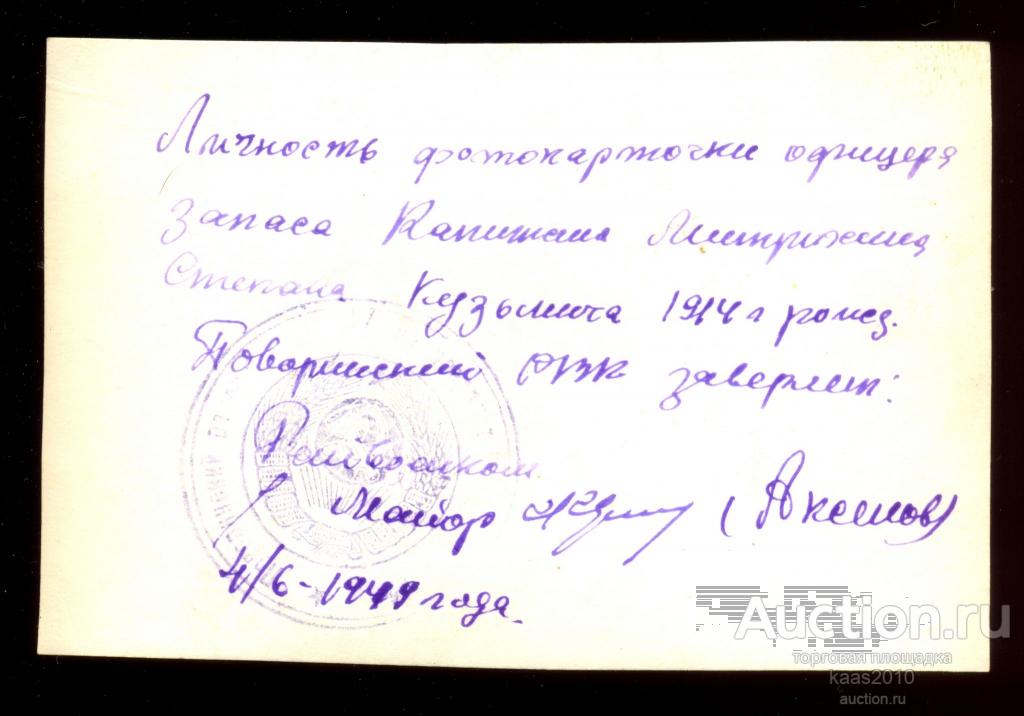 Личность фотокарточки офицера
запаса Капитана Митрохина
Степана Кузьмича 1914 г рожд.
Поворинский РВК заверяет:
Райвоенком
Майор (Аксенов)
4/6-1949 года.
Auction.ru
торговая площадка
kaas2010
auction.ru